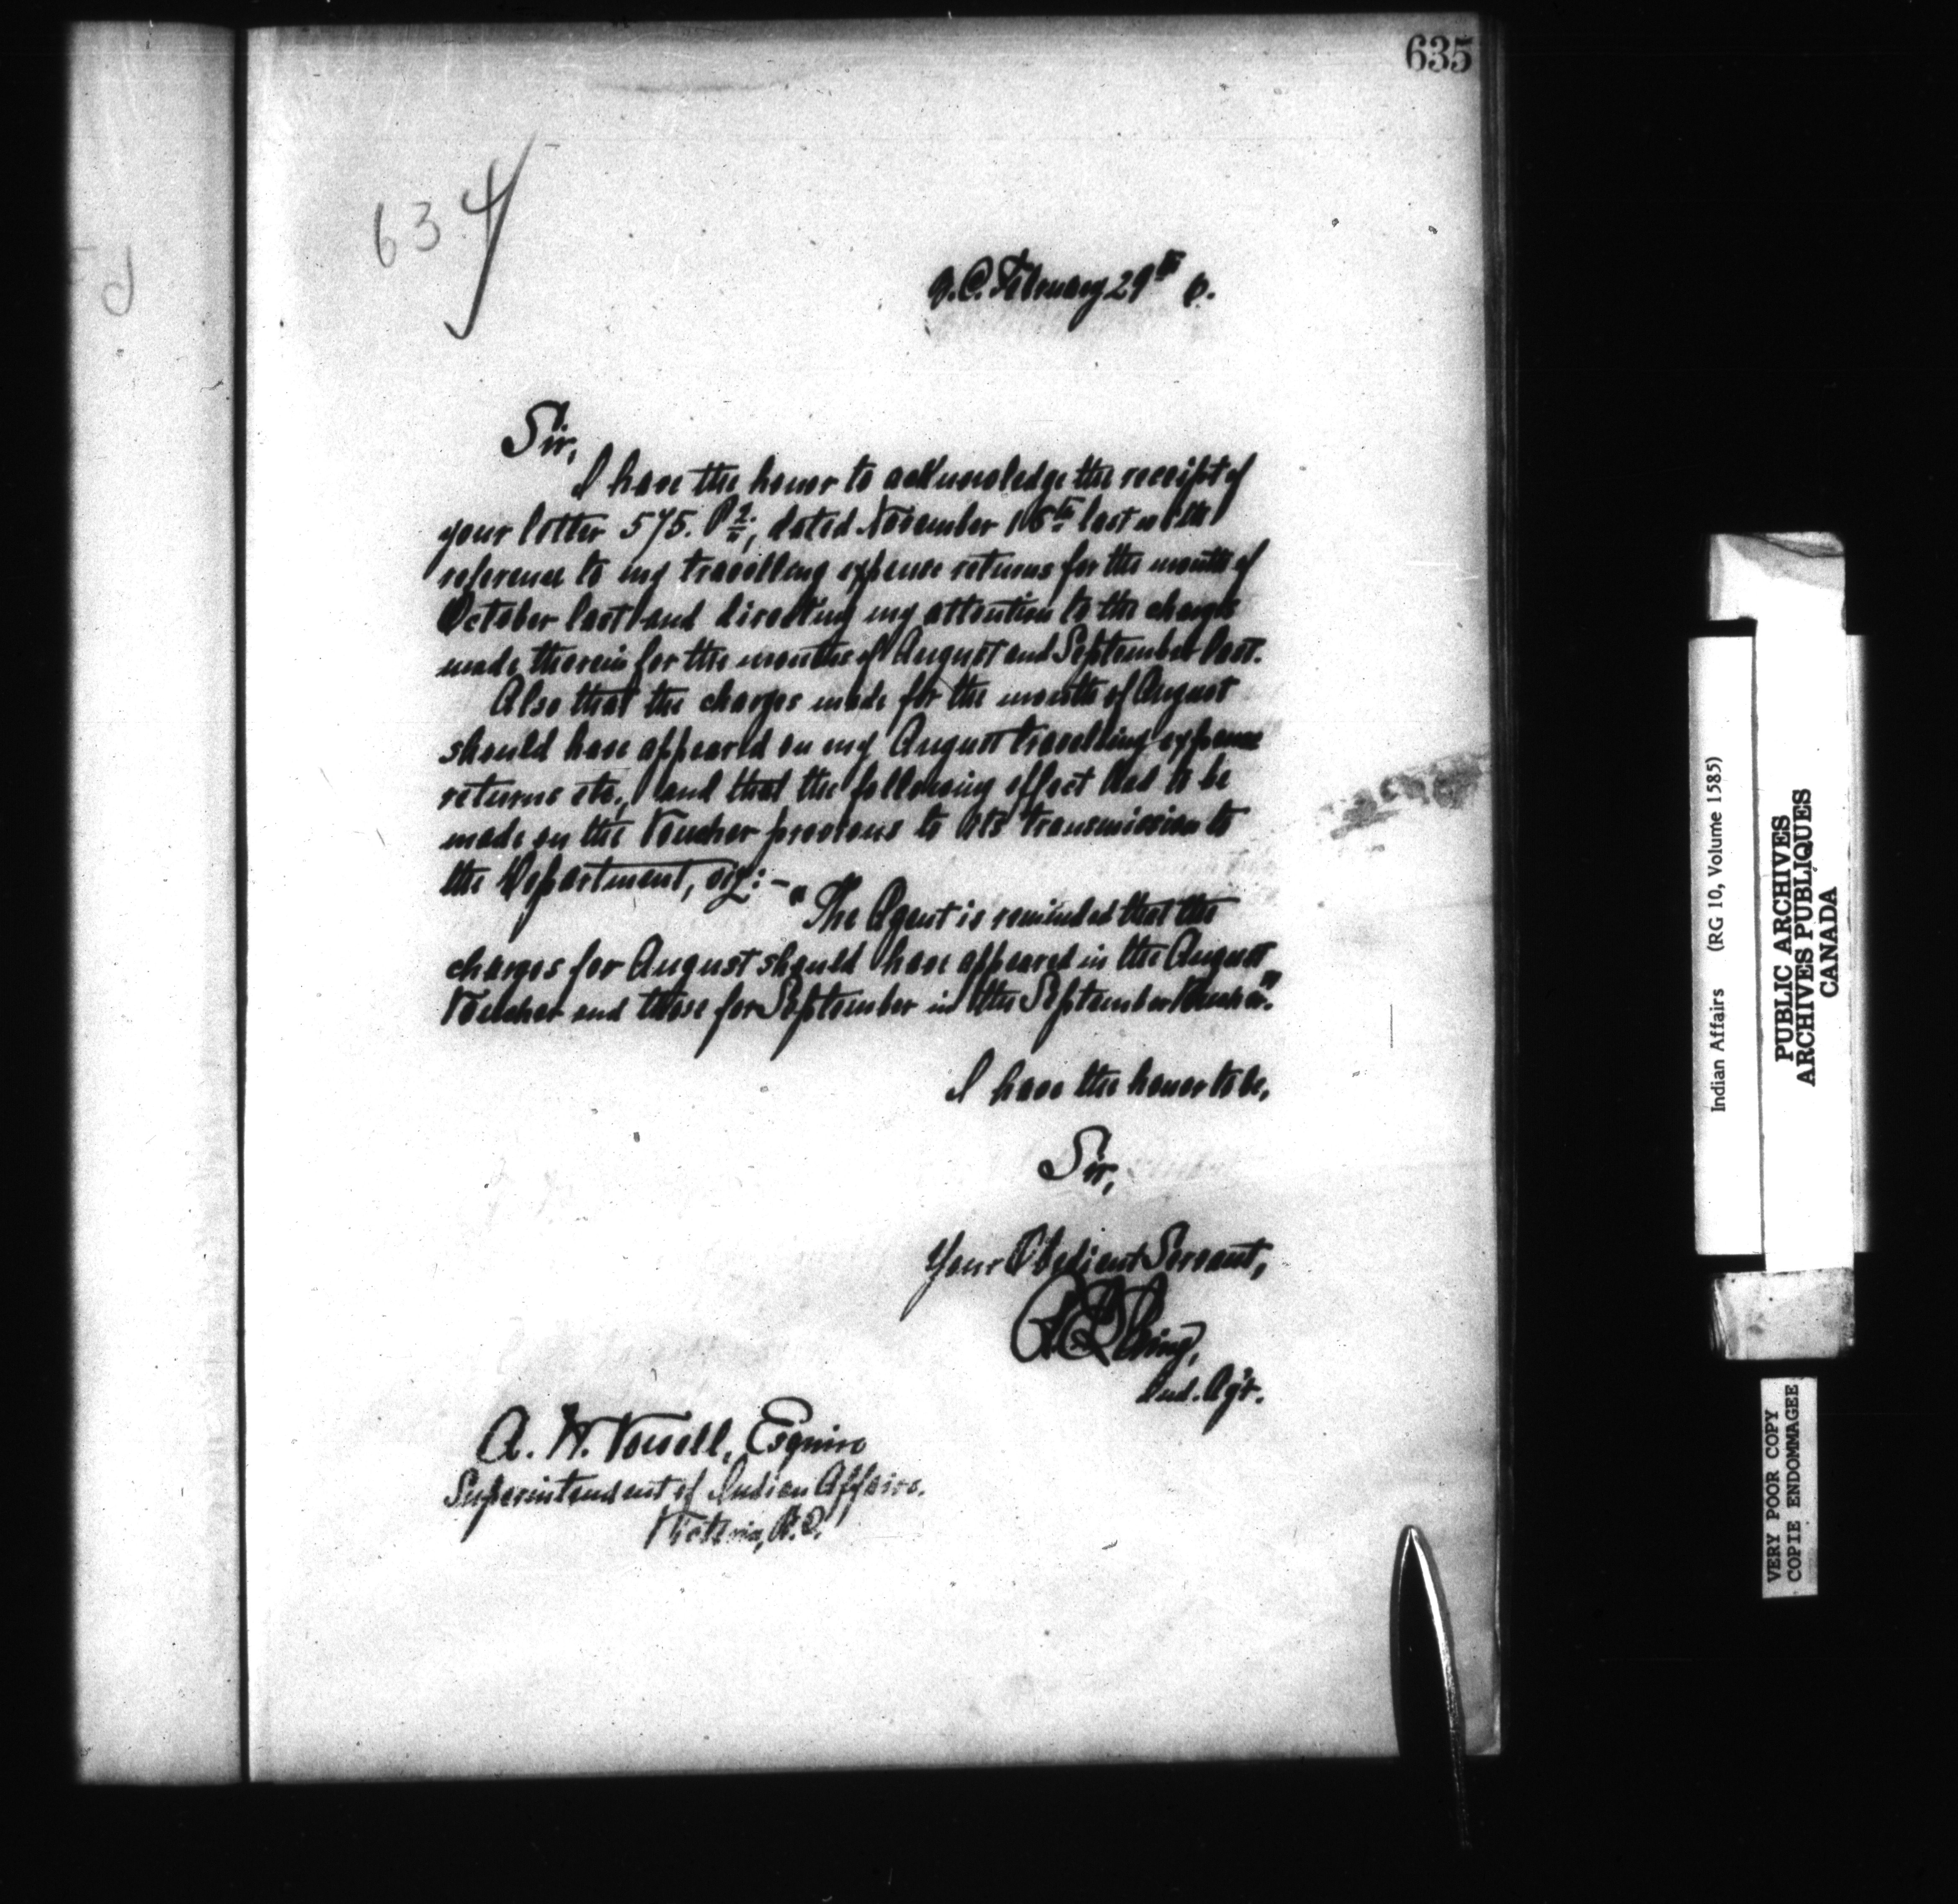 635
634
February 29th 6.
Sir,
I have the honor to acknowledge the receipt of
your letter 575. P 2/., dated November 16th last with
reference to my travelling expense returns for the month of
October last and directing my attention to the charges
made therein for the months of August and September last.
Also that the charges made for the month of August
should have appeared on my August travelling expense
returns etc., and that the following effect had to be
made on the Voucher previous to its transmission to
the Department, viz:-
"The Agent is reminded that the
charges for August should have appeared in the August
Voucher and those for September in the September Voucher."
I have the honor to be,
Sir,
Your Obedient Servant,
Ind. Agt.
A. W. Vowell, Esquire
Superintendent of Indian Affairs.
Victoria, B.C.
Indian Affairs (RG 10, Volume 1585)
PUBLIC ARCHIVES
ARCHIVES PUBLIQUES
CANADA
VERY POOR COPY
COPIE ENDOMMAGEE